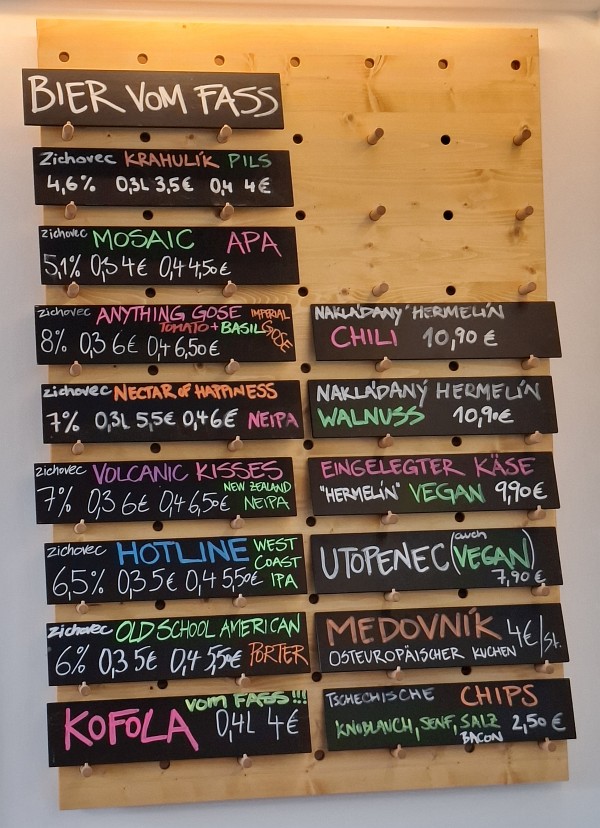 BIER VOM FASS
Zichovec KRAHULÍK PILS
4,6% 0,3L 3,5€ 0,4 4€
zichovec MOSAIC APA
5,1% 0,3 4€ 0,4 4,50€
zichovec ANYTHING GOSE IMPERIAL
TOMATO + BASIL GOSE
8% 0,3 6€ 0,4 6,50€
zichovec NECTAR OF HAPPINESS
7% 0,3L 5,5€ 0,4 6€ NEIPA
zichovec VOLCANIC KISSES
NEW ZEALAND
7% 0,3 6€ 0,4 6,50€ NEIPA
zichovec HOTLINE WEST
COAST
6,5% 0,3 5€ 0,4 5,50€ IPA
zichovec OLD SCHOOL AMERICAN
6% 0,3 5€ 0,4 5,5€ PORTER
VOM FASS!!!
KOFOLA 0,4L 4€
NAKLÁDANÝ HERMELÍN
CHILI 10,90€
NAKLÁDANÝ HERMELÍN
WALNUSS 10,9€
EINGELEGTER KÄSE
"HERMELÍN" VEGAN 9,90€
UTOPENEC (auch VEGAN)
7,90€
MEDOVNÍK 4€/St.
OSTEUROPÄISCHER KUCHEN
TSCHECHISCHE CHIPS
KNOBLAUCH, SENF, SALZ 2,50€
BACON